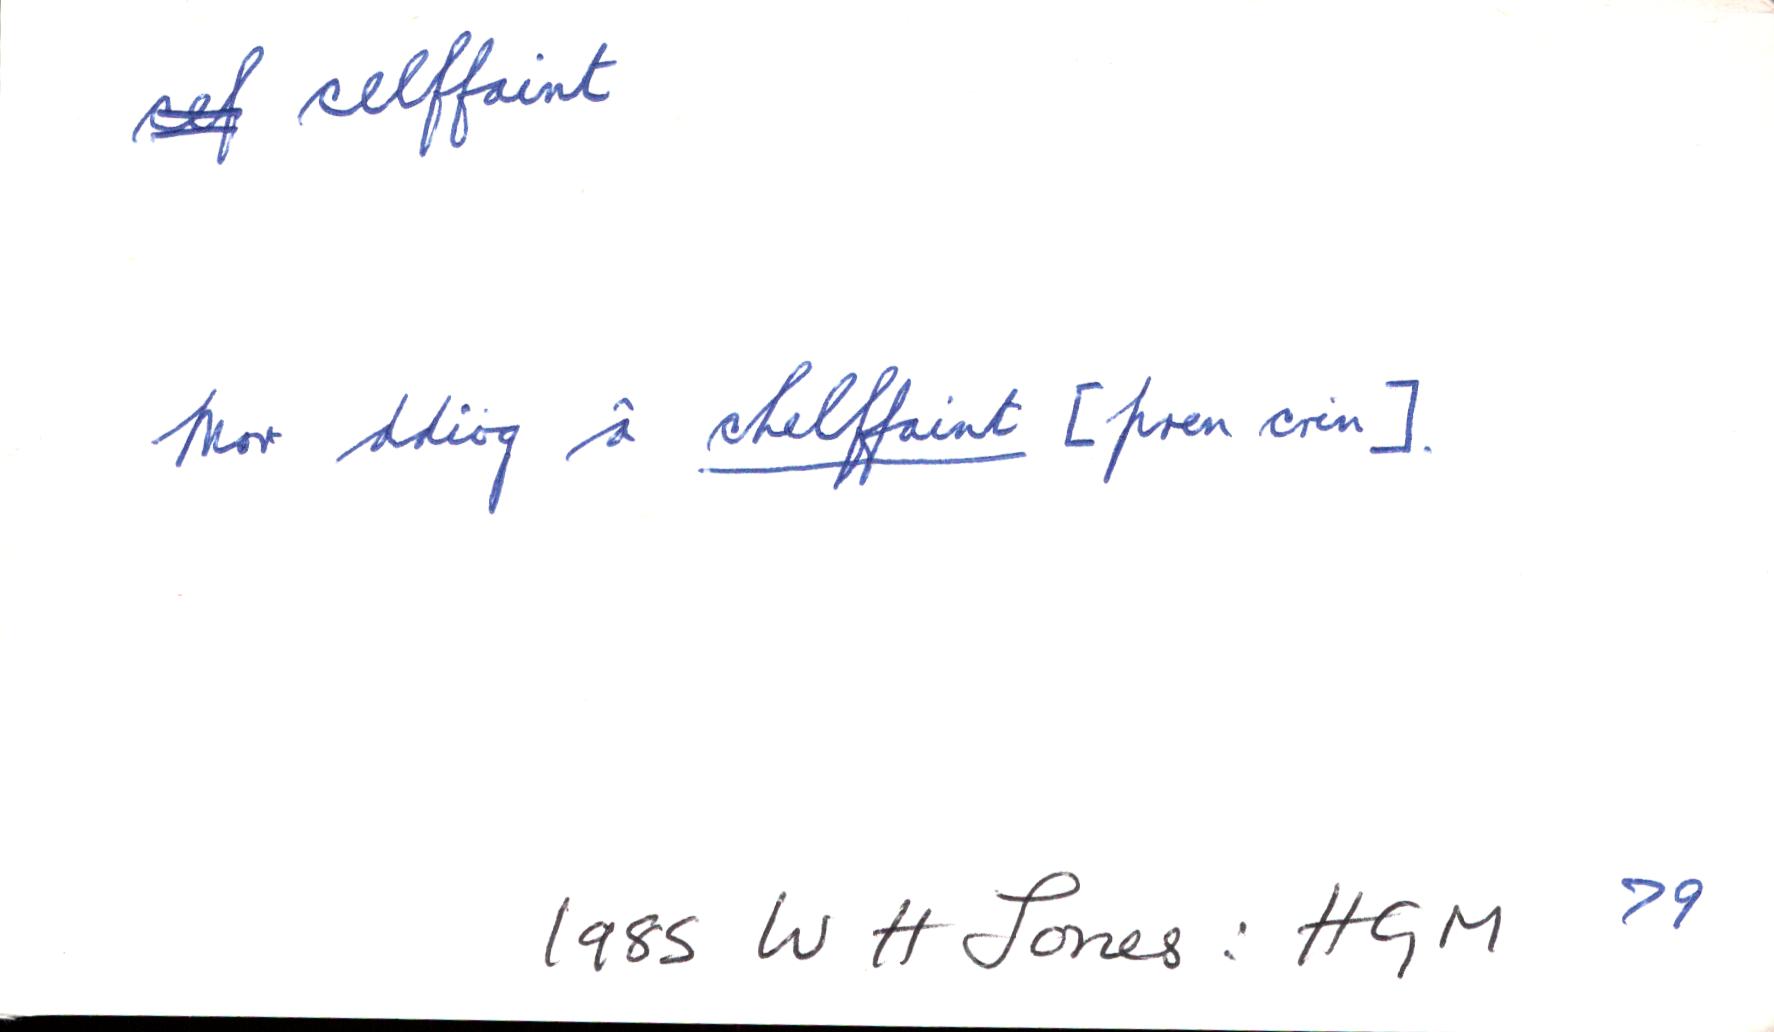 celffaint
Mor ddiog â chelffaint [pren crin].
1985 W H Jones: HGM 79